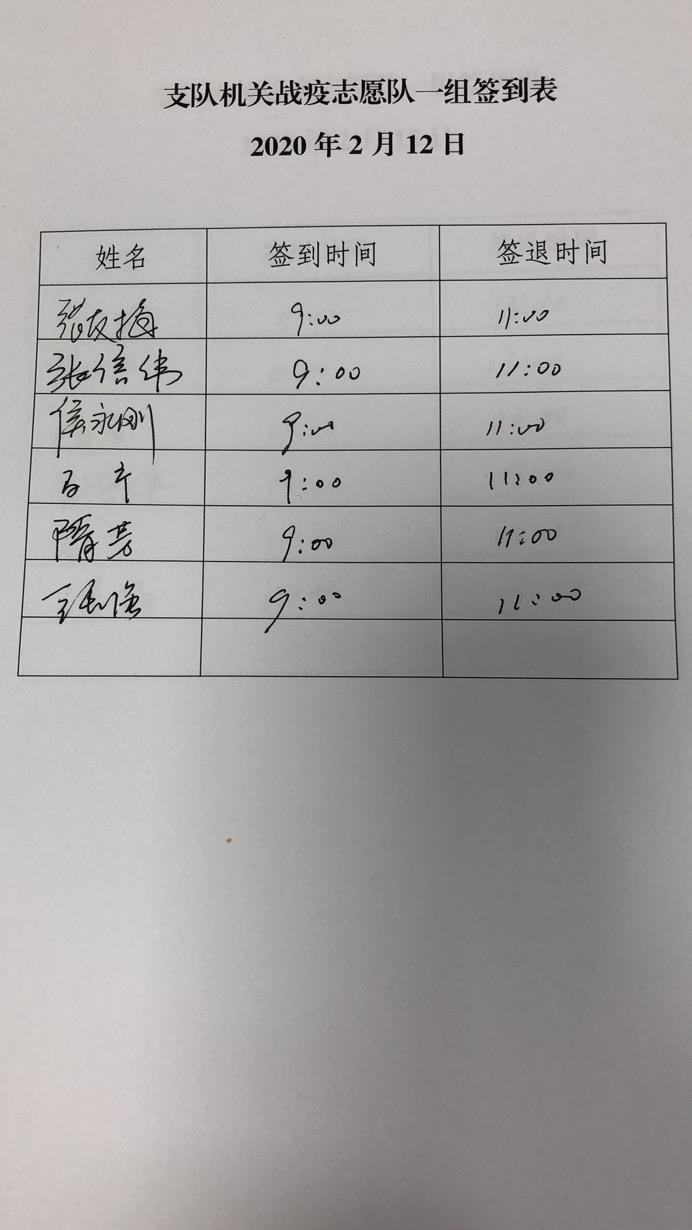 支队机关战疫志愿队一组签到表
2020 年 2 月 12 日
姓名 签到时间 签退时间
张友梅 9:00 11:00
张信伟 9:00 11:00
侯永刚 9:00 11:00
9:00 11:00
隋芳 9:00 11:00
9:00 11:00